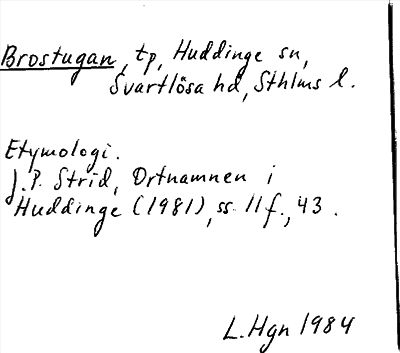 Brostugan, tp, Huddinge sn,
Svartlösa hd, Sthlms l.
Etymologi.
J.P. Strid, Ortnamnen i
Huddinge (1981), ss. 11 f., 43.
L.Hgn 1984